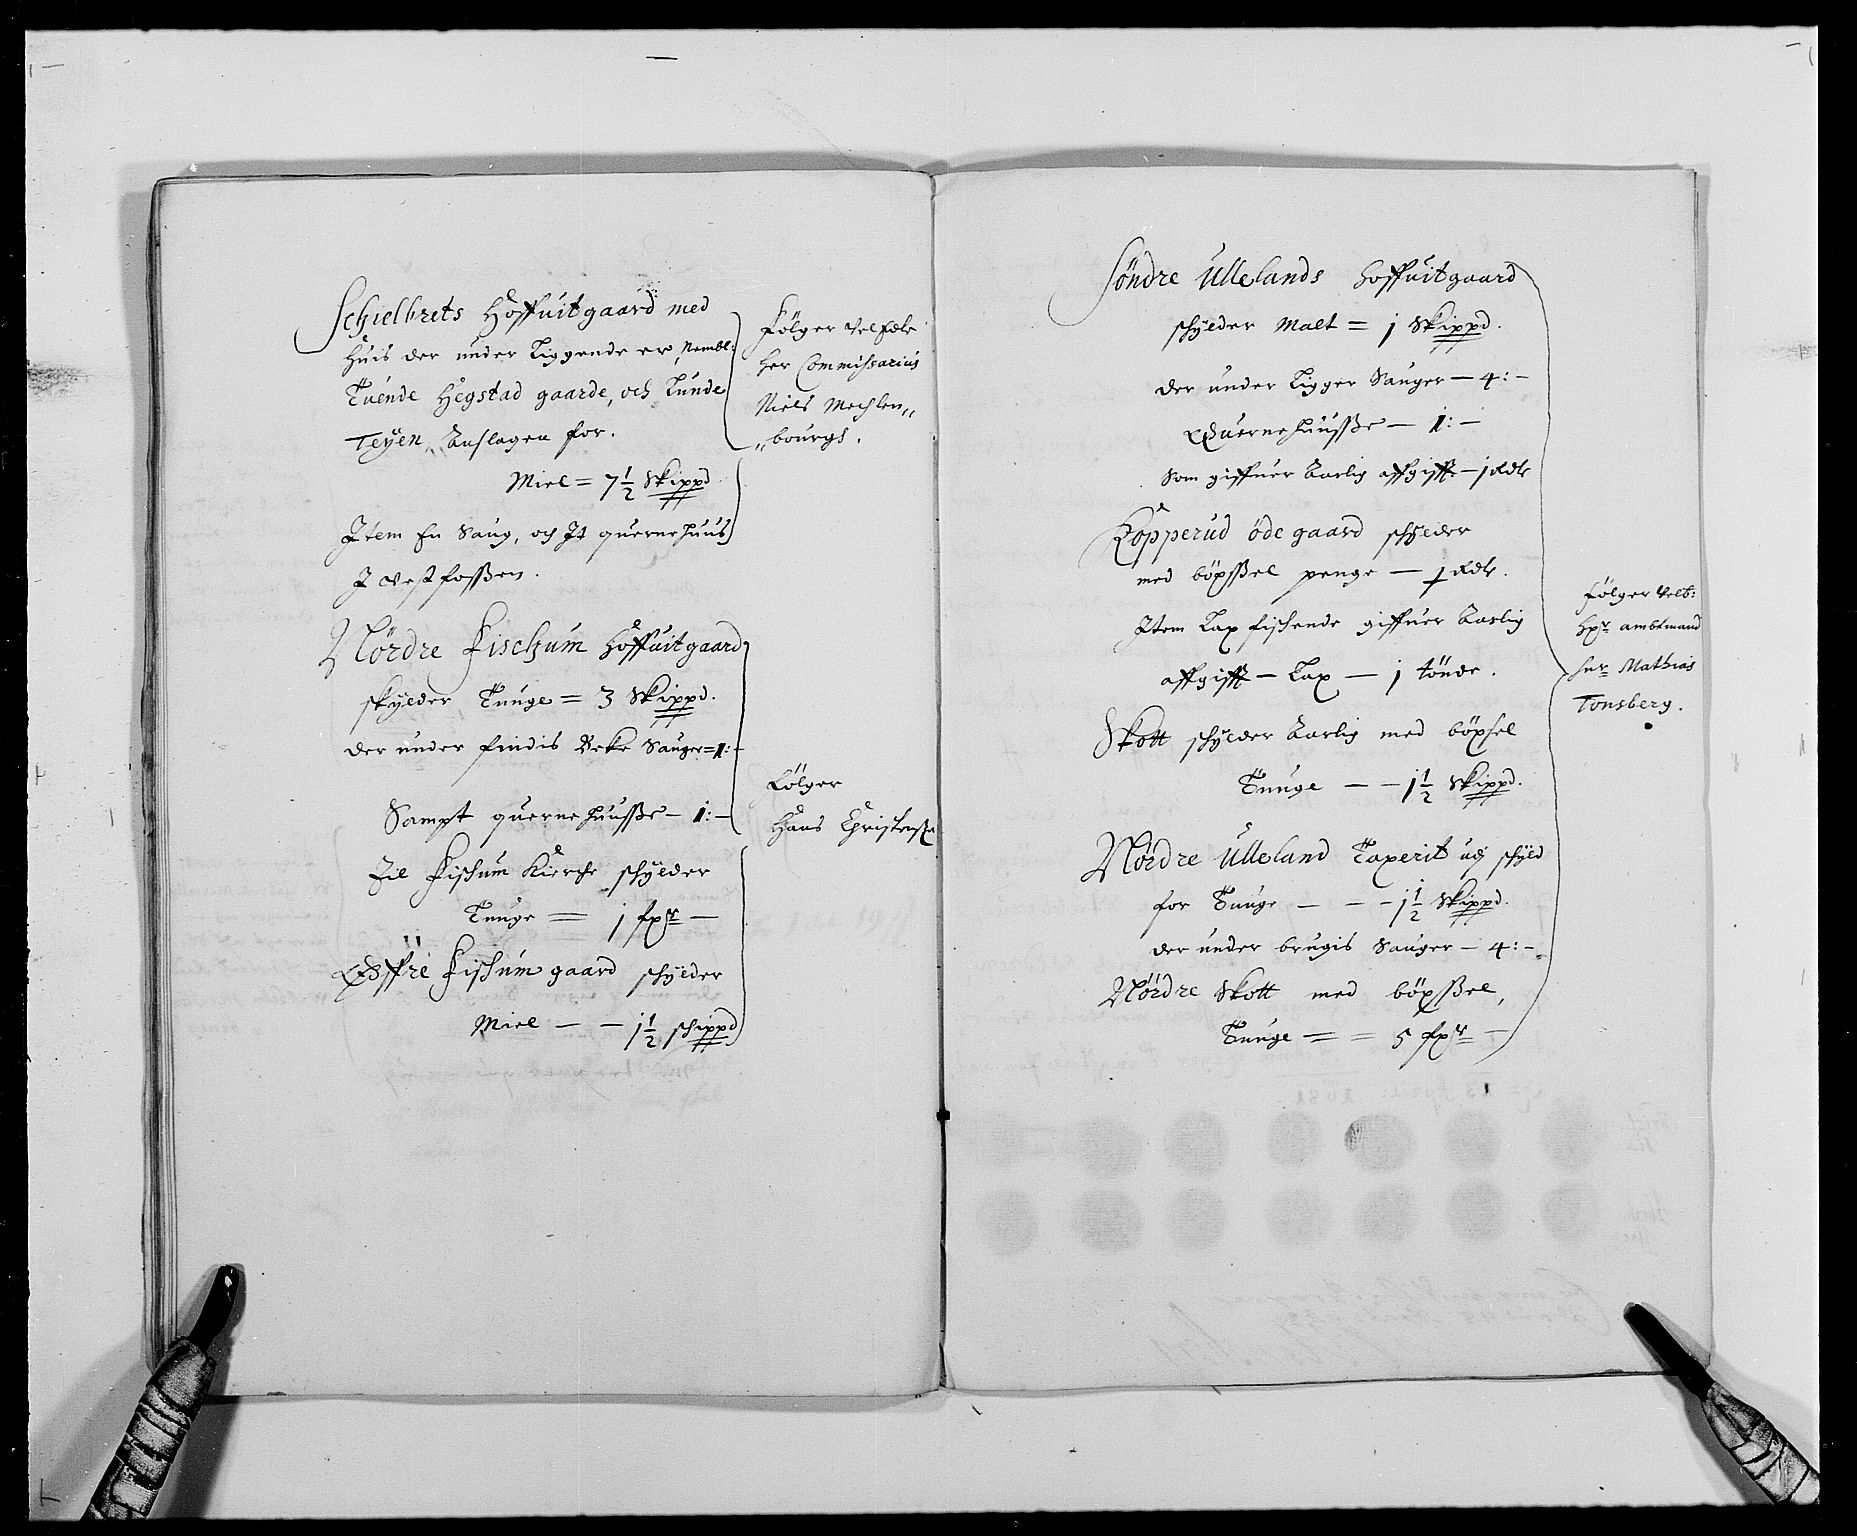 Schielbrets Hoffuitgaard med
Huis der under Liggende er, Nembl:
Tuende Hegstad gaarde, och Lunde
Teyen, Anslagen for.
Miel = 7½ Skippd
Item En Saug, och It quernehuus
I Vestfossen.
Følger Velædle
Her Commissarius
Niels Mechlen„
„bourgh.
Nördre Fischum Hoffuitgaard
skylder Tunge = 3 Skippd.
der under findis Beke Sauger = 1:-
Sampt quernehuusse - 1:-
Til Fischum Kierche schylder
Tunge = 1 fxr -
Øffre Fischum gaard schylder
Miel - - 1½ schippd
Følger
Hans Christensen
Söndre Ullelands Hoffuitgaard
schylder Malt = 1 Skippd.
der under Ligger Sauger - 4:-
Querne huusse - 1:-
Som giffuer Aarlig affgifft - 1 Rdr
Kopperud öde gaard schylder
med böxssel penge - 1 Rdr.
Item Lax fischende giffuer Aarlig
affgifft - Lax - 1 tönde.
Skott schylder Aarlig med böxsel
Tunge - - 1½ Skippd.
Nördre Ulleland Taxerit udj schyld
for Tunge - - - 1½ Skippd.
der under brugis Sauger - 4:-
Nördre Skott med böxssel,
Tunge = = 5 fxr -
følger Velb:
Hr ambtmand
Hr Mathias
Tonsberg.